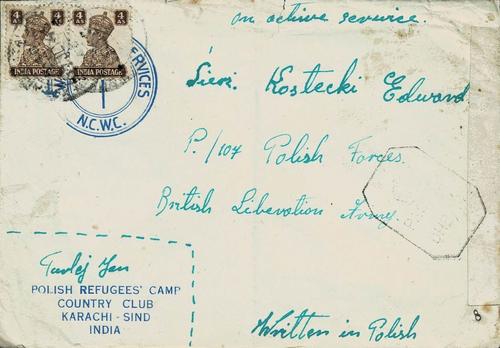 on active service.
4 AS 4 AS
INDIA POSTAGE INDIA POSTAGE
SERVICES
N.C.W.C.
Sierż. Kostecki Edward
P./107 Polish Forces.
British Liberation Army.
POLISH REFUGEES' CAMP
COUNTRY CLUB
KARACHI - SIND
INDIA
Written in Polish
8